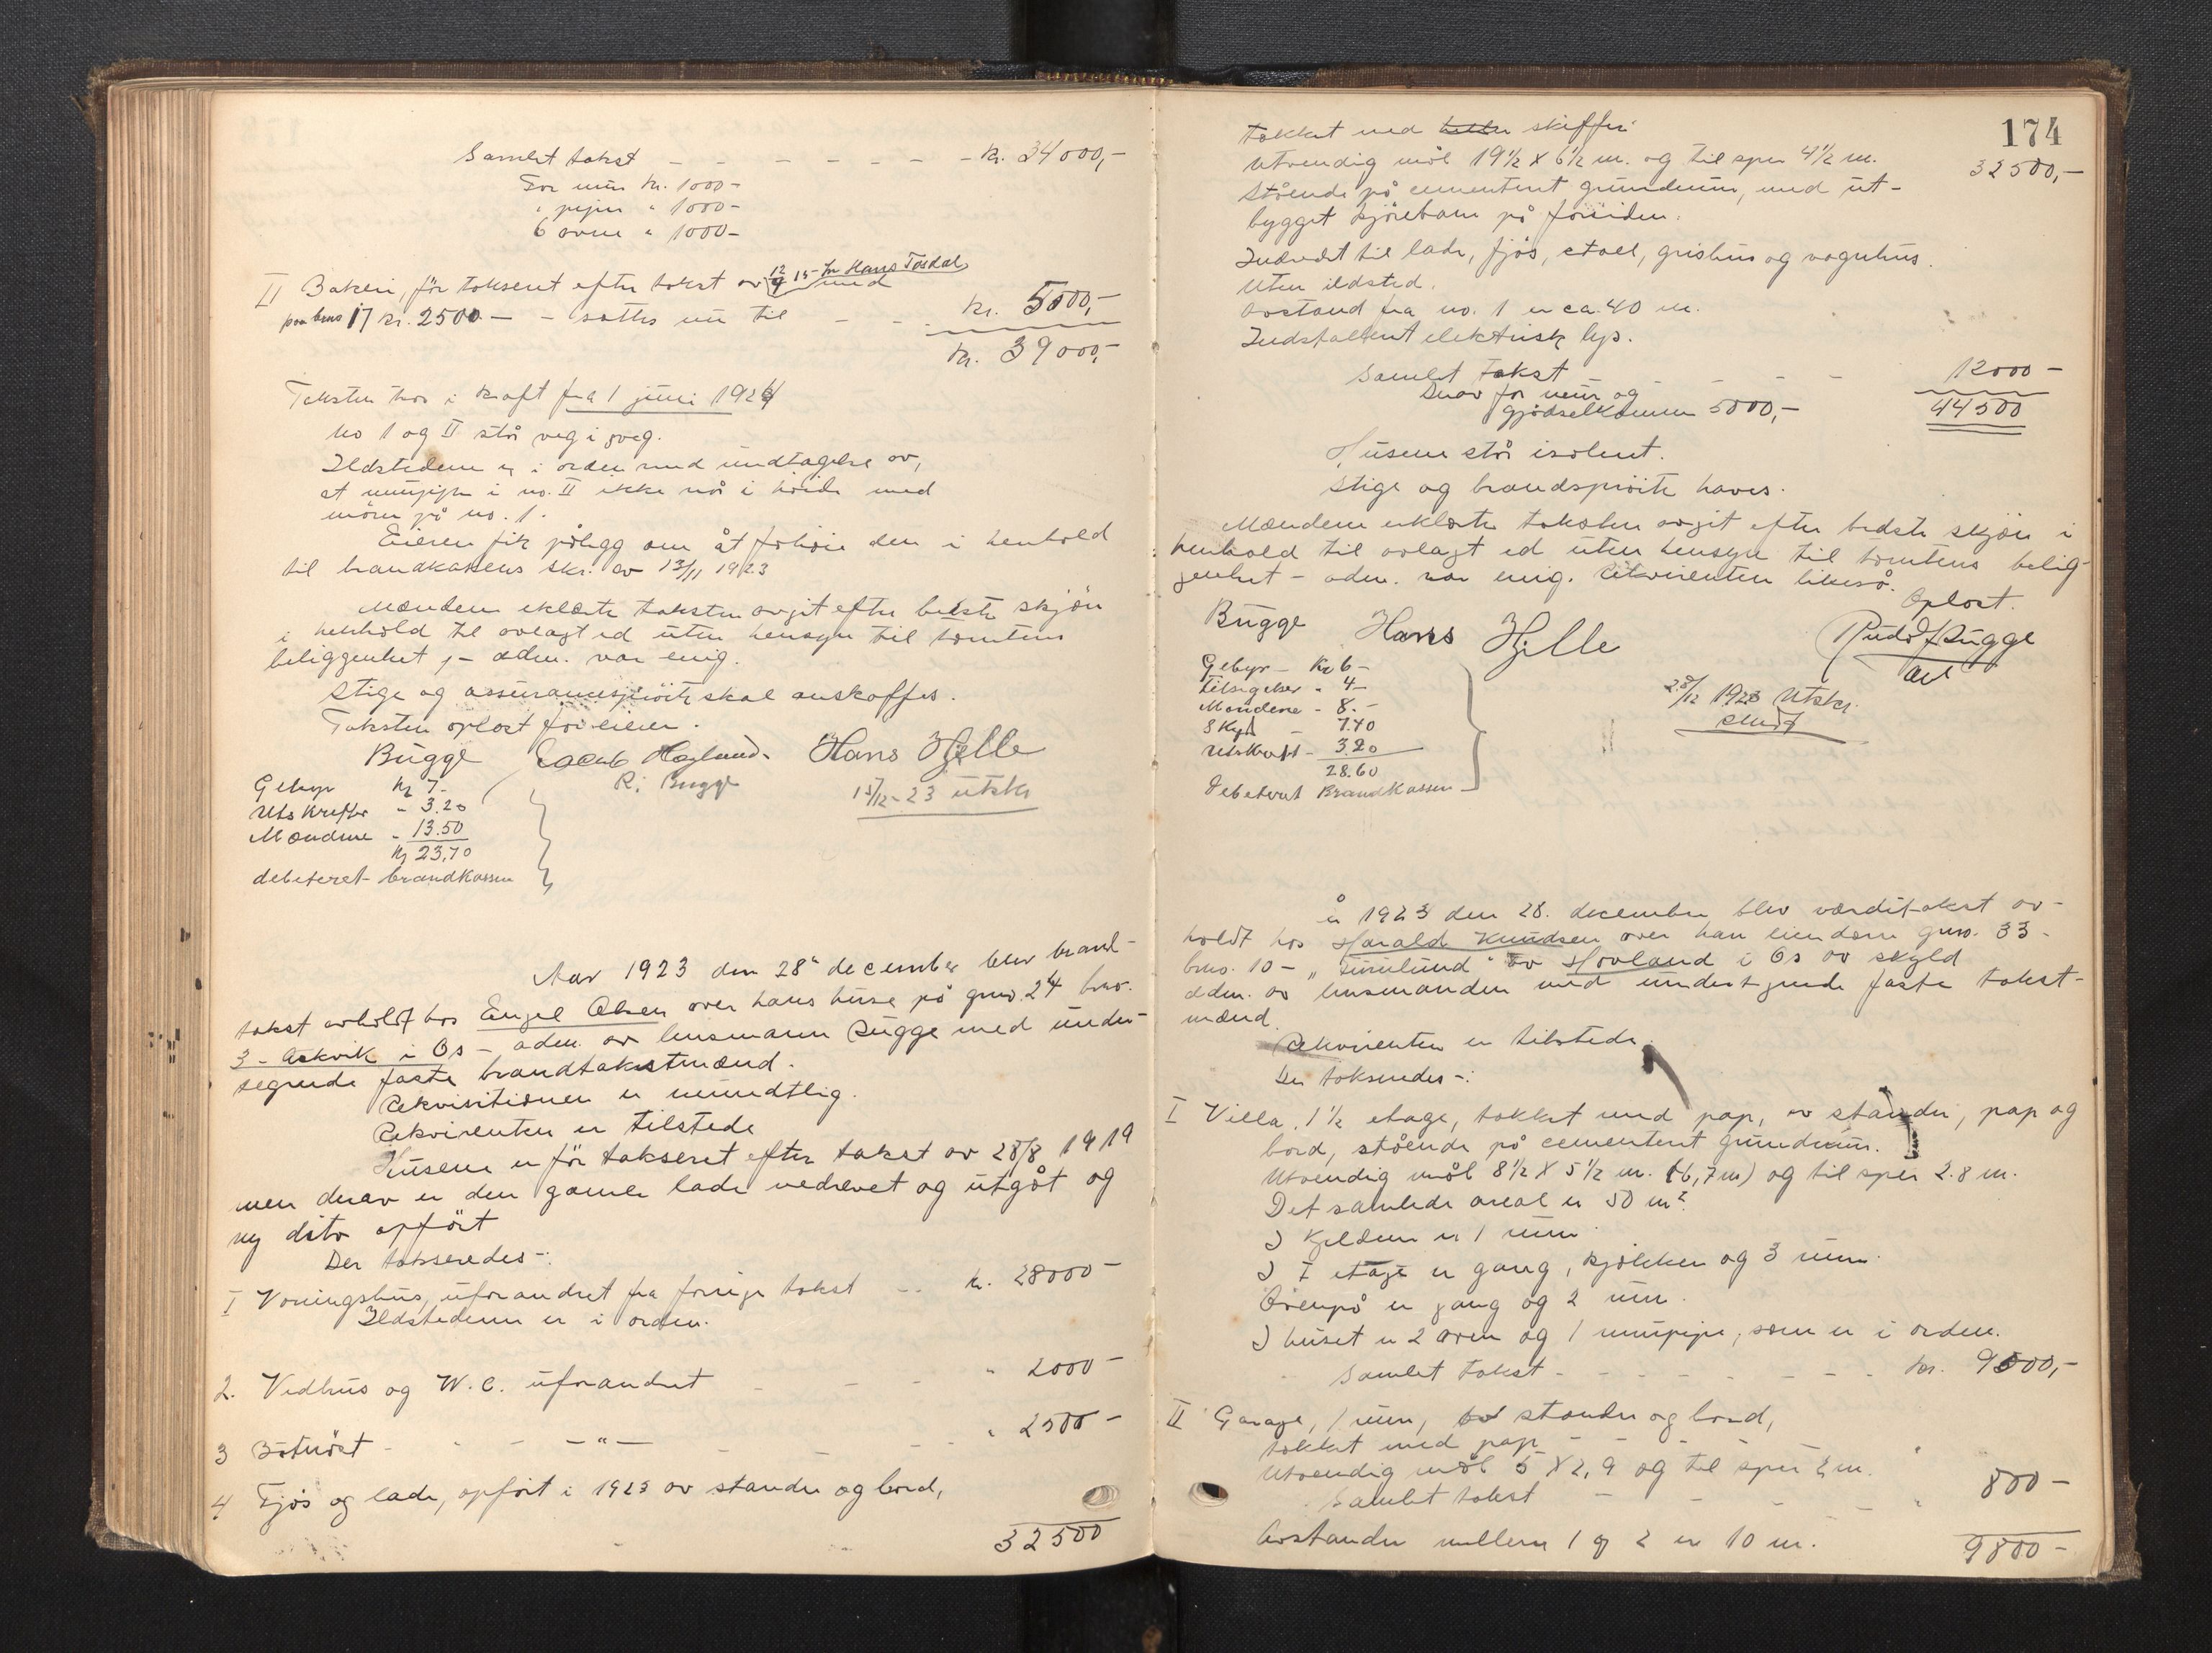 Samlet takst — — — — — — — kr. 34000,-
For mur kr. 1000-
" pipen " 1000-
6 ovne " 1000-
II Bakeri, før takseret efter takst av 12/9 15 for Hans Tøsdal med
paa bnr 17 kr. 2500 — - sættes nu til — — kr. 5000,-
kr. 39000,-
Taksten har i kraft fra 1 juni 1924
No 1 og II står veg i veg.
Ildstedene er i orden med undtagelse av,
at murpipen i no. II ikke når i høide med
mønen på no. 1.
Eieren fik pålegg om åt forhøie den i henhold
til brandkassens skr. av 13/11 1923
Mændene erklærte taksten avgit efter beste skjøn
i henhold til avlagt ed uten hensyn til tomtens
beliggenhet, - adm. var enig.
Stige og assuransesprøite skal anskaffes.
Taksten oplæst for eieren.
Bugge Jacob Hegland Hans Hjelle
R. Bugge
Gebyr kr 7-
Utskrifter - 3.20
Mændene - 13.50
kr 23,70
debeteret brandkassen
15/12-23 utskr
Aar 1923 den 28 december blev brand-
takst avholdt hos Engel Olsen over hans huse på gno. 24 bno.
3 - Askvik i Os - adm. av lensmann Bugge med under-
tegnede faste brandtakstmænd.
Rekvisitionen er mundtlig.
Rekvirenten er tilstede
Husene er før takseret efter takst av 28/8 1919
men derav er den gamle lade nedrevet og utgåt og
ny dito opført
Der takseredes -:
I Vaaningshus, uforandret fra forrige takst - - kr. 28000 -
Ildstedene er i orden.
2. Vedhus og W.C. uforandret - - - " 2000 -
3 Båtnøst - - - — " — - - - " 2500 -
4 Fjøs og lade, opført i 1923 av stander og bord,
32500
174
takket med skiffer.
Utvendig mål 19 ½ X 6 ½ m. og til sper 4 ½ m. 32500,-
Stående på cementert grundmur, med ut-
bygget kjørebane på forsiden.
Indredet til lade, fjøs, stall, grishus og vognhus.
Uten ildsted.
Avstand fra no. 1 er ca. 40 m.
Indstallert elektrisk lys.
Samlet takst — - - - - 12000 -
Derav for mur og
gjødselkummen 5000,- 44500
Husene står isolert.
Stige og brandsprøite haves.
Mændene erklærte taksten avgit efter bedste skjøn i
henhold til avlagt ed uten hensyn til tomtens belig-
genhet - adm. var enig. Rekvirenten likeså.
Oplæst.
Bugge Hans Hjelle Rudolf Bugge
Gebyr - Kr 6 -
Tilsigelser " 4 -
Mændene - 8. -
Skyds - 7.40
Utskrift - 3.20
28.60
Debeteret Brandkassen
28/12 1923 Utskr.
sendt
År 1923 den 28. december blev værditakst av-
holdt hos Harald Knudsen over han eiendom gno. 33 -
bno. 10 - "Furulund" av Hovland i Os av skyld
adm. av lensmanden med undertegnede faste takst-
mænd.
Rekvirenten er tilstede.
Der takseredes -:
I Villa, 1 ½ etage, takket med pap, av stander, pap og
bord, stående på cementert grundmur.
Utvendig mål 8 ½ X 5 ½ m. (6,7 m) og til sper 2.8 m.
Det samlede areal er 50 m².
I Kjelderen er 1 rum
I I etage er gang, kjøkken og 3 rum.
Ovenpå er gang og 2 rum.
I huset er 2 ovne og 1 murpipe, som er i orden.
Samlet takst - - - - - - - - kr. 9000,-
II Garage, 1 rum, av stander og bord,
takket med pap
Utvendig mål 5 X 2,9 og til sper 2 m.
Samlet takst - - - - " 800 -
Avstanden mellem 1 og 2 er 10 m.
9800 -